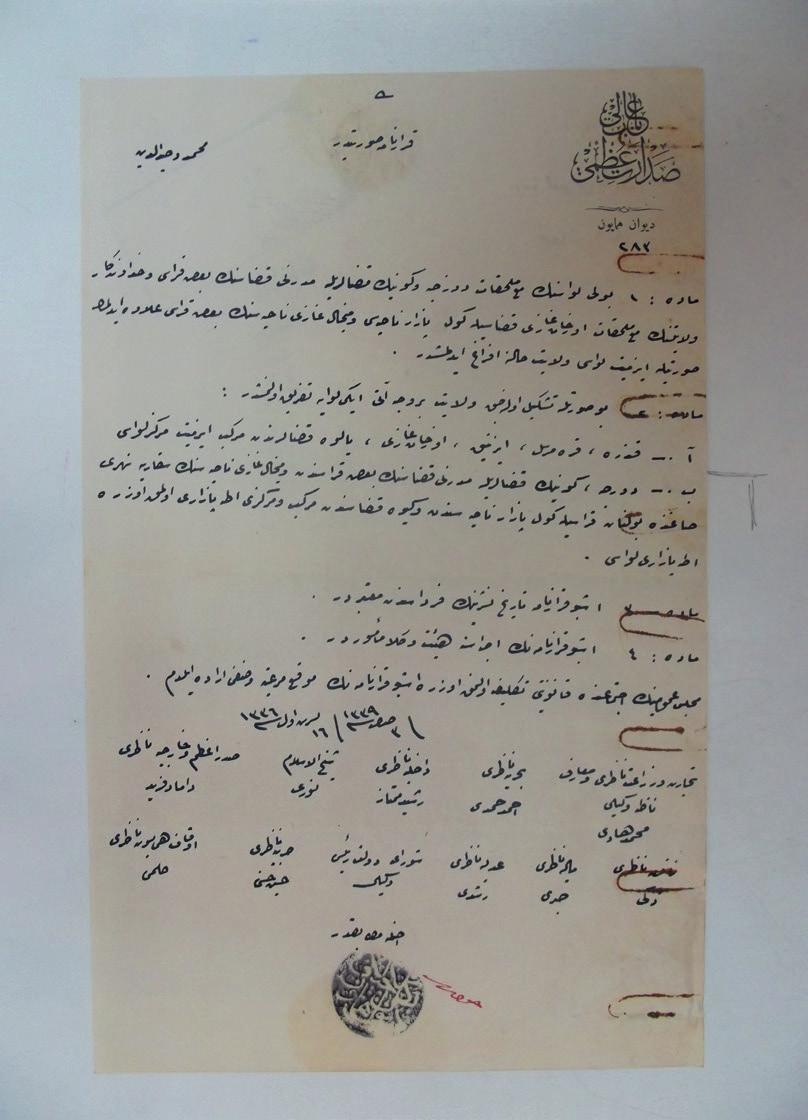 باب عالی
صدارت عظمی
دیوان همایون
٢٨٢
قرارنامه صورتیدر
محمد وحیدالدین
ماده : ١ بولی لواسنك مع ملحقات دوزجه وكونیك قضالریله مدرنی قضاسنك بعض قراسی وخداوندكار
ولایتنك مع ملحقات اورخان غازی قضاسیله كول بازار ناحیه‌سی ومیخال غازی ناحیه‌سنك بعض قراسی علاوه ایدلمك
صورتیله ازمیت لواسی ولایت حالنه افراغ ایدلمشدر .
ماده : ٢ بو صورتله تشكیل اولنان ولایت بروجه آتی ایكی لوایه تفریق اولنمشدر :
آ .- قندره ، قره مرسل ، ازنیق ، اورخان غازی ، یالوه قضالرندن مركب ازمیت مركز لواسی
ب .- دوزجه ، كونیك قضالریله مدرنی قضاسنك بعض قراسندن ومیخال غازی ناحیه‌سنك سقاریه نهری
صاغنده بولنان قراسیله كول بازار ناحیه‌سندن وكیوه قضاسندن مركب ومركزی اطه بازاری اولمق اوزره
اطه بازاری لواسی .
ماده : ٣ اشبو قرارنامه تاریخ نشرینك فرداسندن معتبردر .
ماده : ٤ اشبو قرارنامه‌نك اجراسنه هیئت وكلا مأموردر .
مجلس عمومینك اجتماعنده قانونیتی تكلیف اولنمق اوزره اشبو قرارنامه‌نك موقع مرعیته وضعنی اراده ایلدم .
٣ صفر ١٣٣٩ / ١٦ تشرین اول ١٣٣٦
صدر اعظم وخارجیه ناظری
داماد فرید
شیخ الاسلام
نوری
داخلیه ناظری
رشید ممتاز
بحریه ناظری
احمد حمدی
تجارت وزراعت ناظری ومعارف
ناظر وكیلی
محمد هادی
اوقاف همایون ناظری
حلمی
حربیه ناظری
حسین حسنی
شورای دولت رئیسی
وكیلی
عدلیه ناظری
رشدی
مالیه ناظری
نافعه ناظری
اصلنه مطابقدر